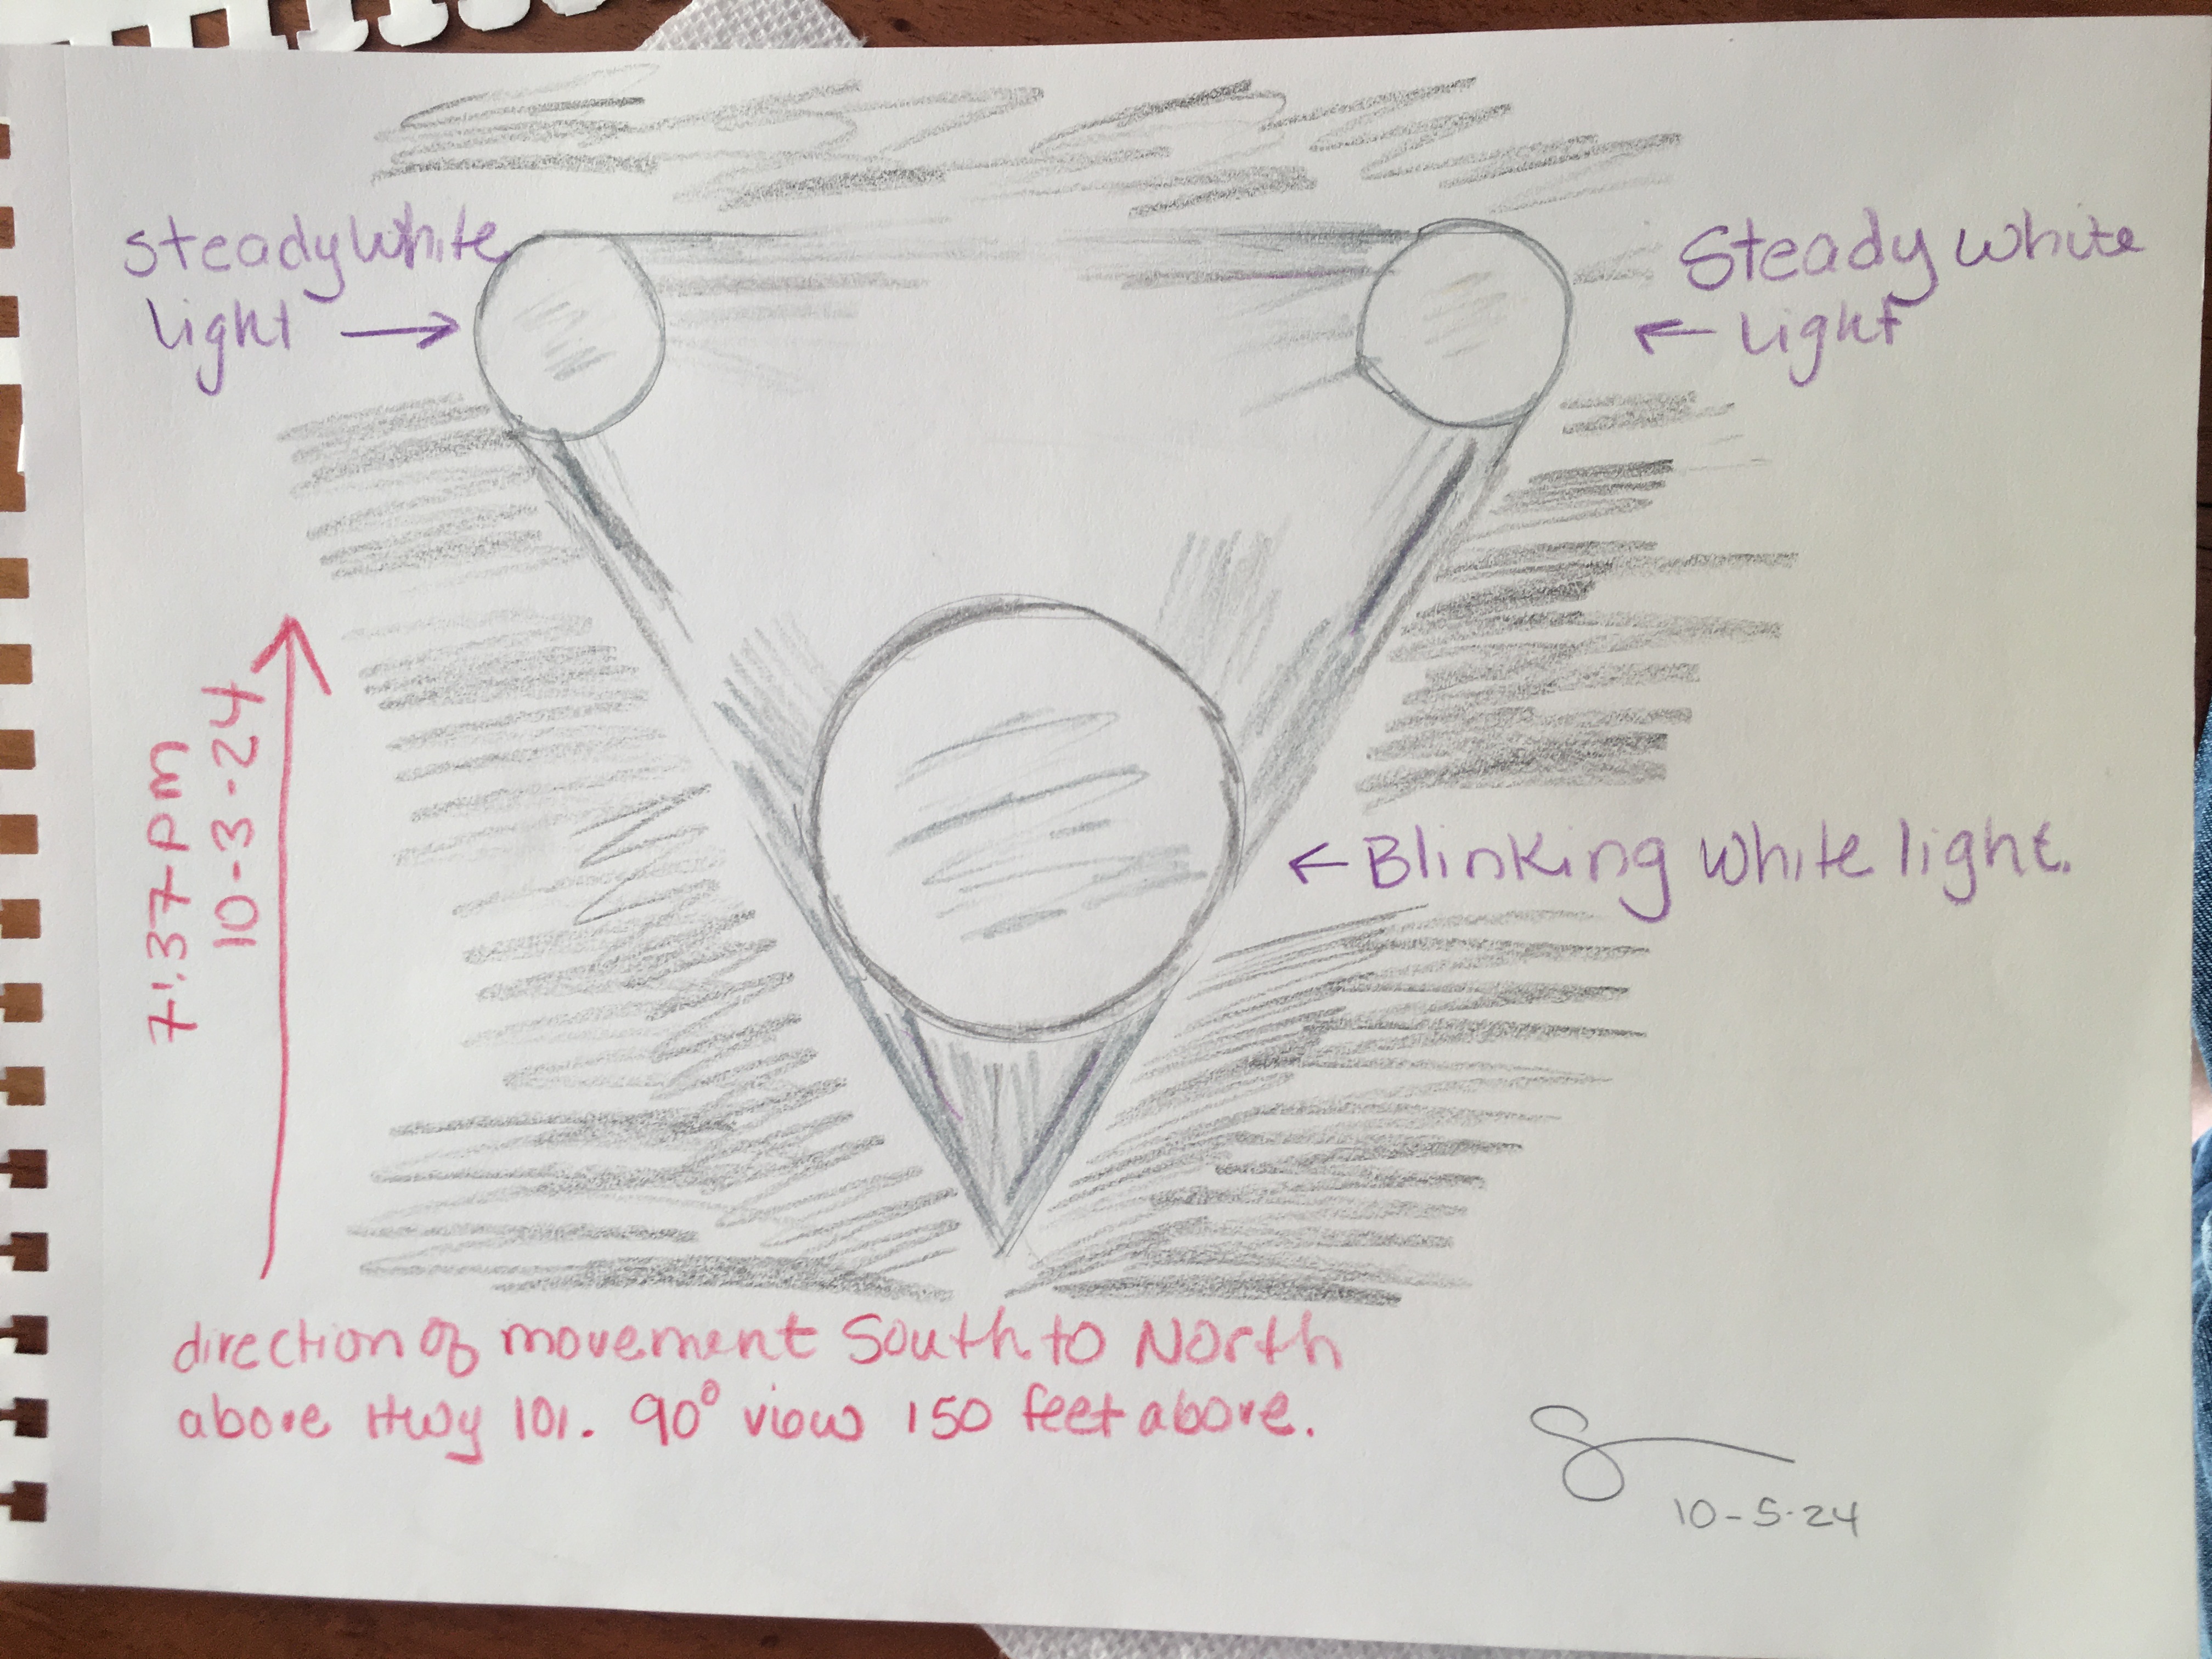 Steady white
Light →
Steady white
← Light
← Blinking white light.
7:37 pm
10-3-24
direction of movement South to North
above Hwy 101. 90° view 150 feet above.
10-5-24